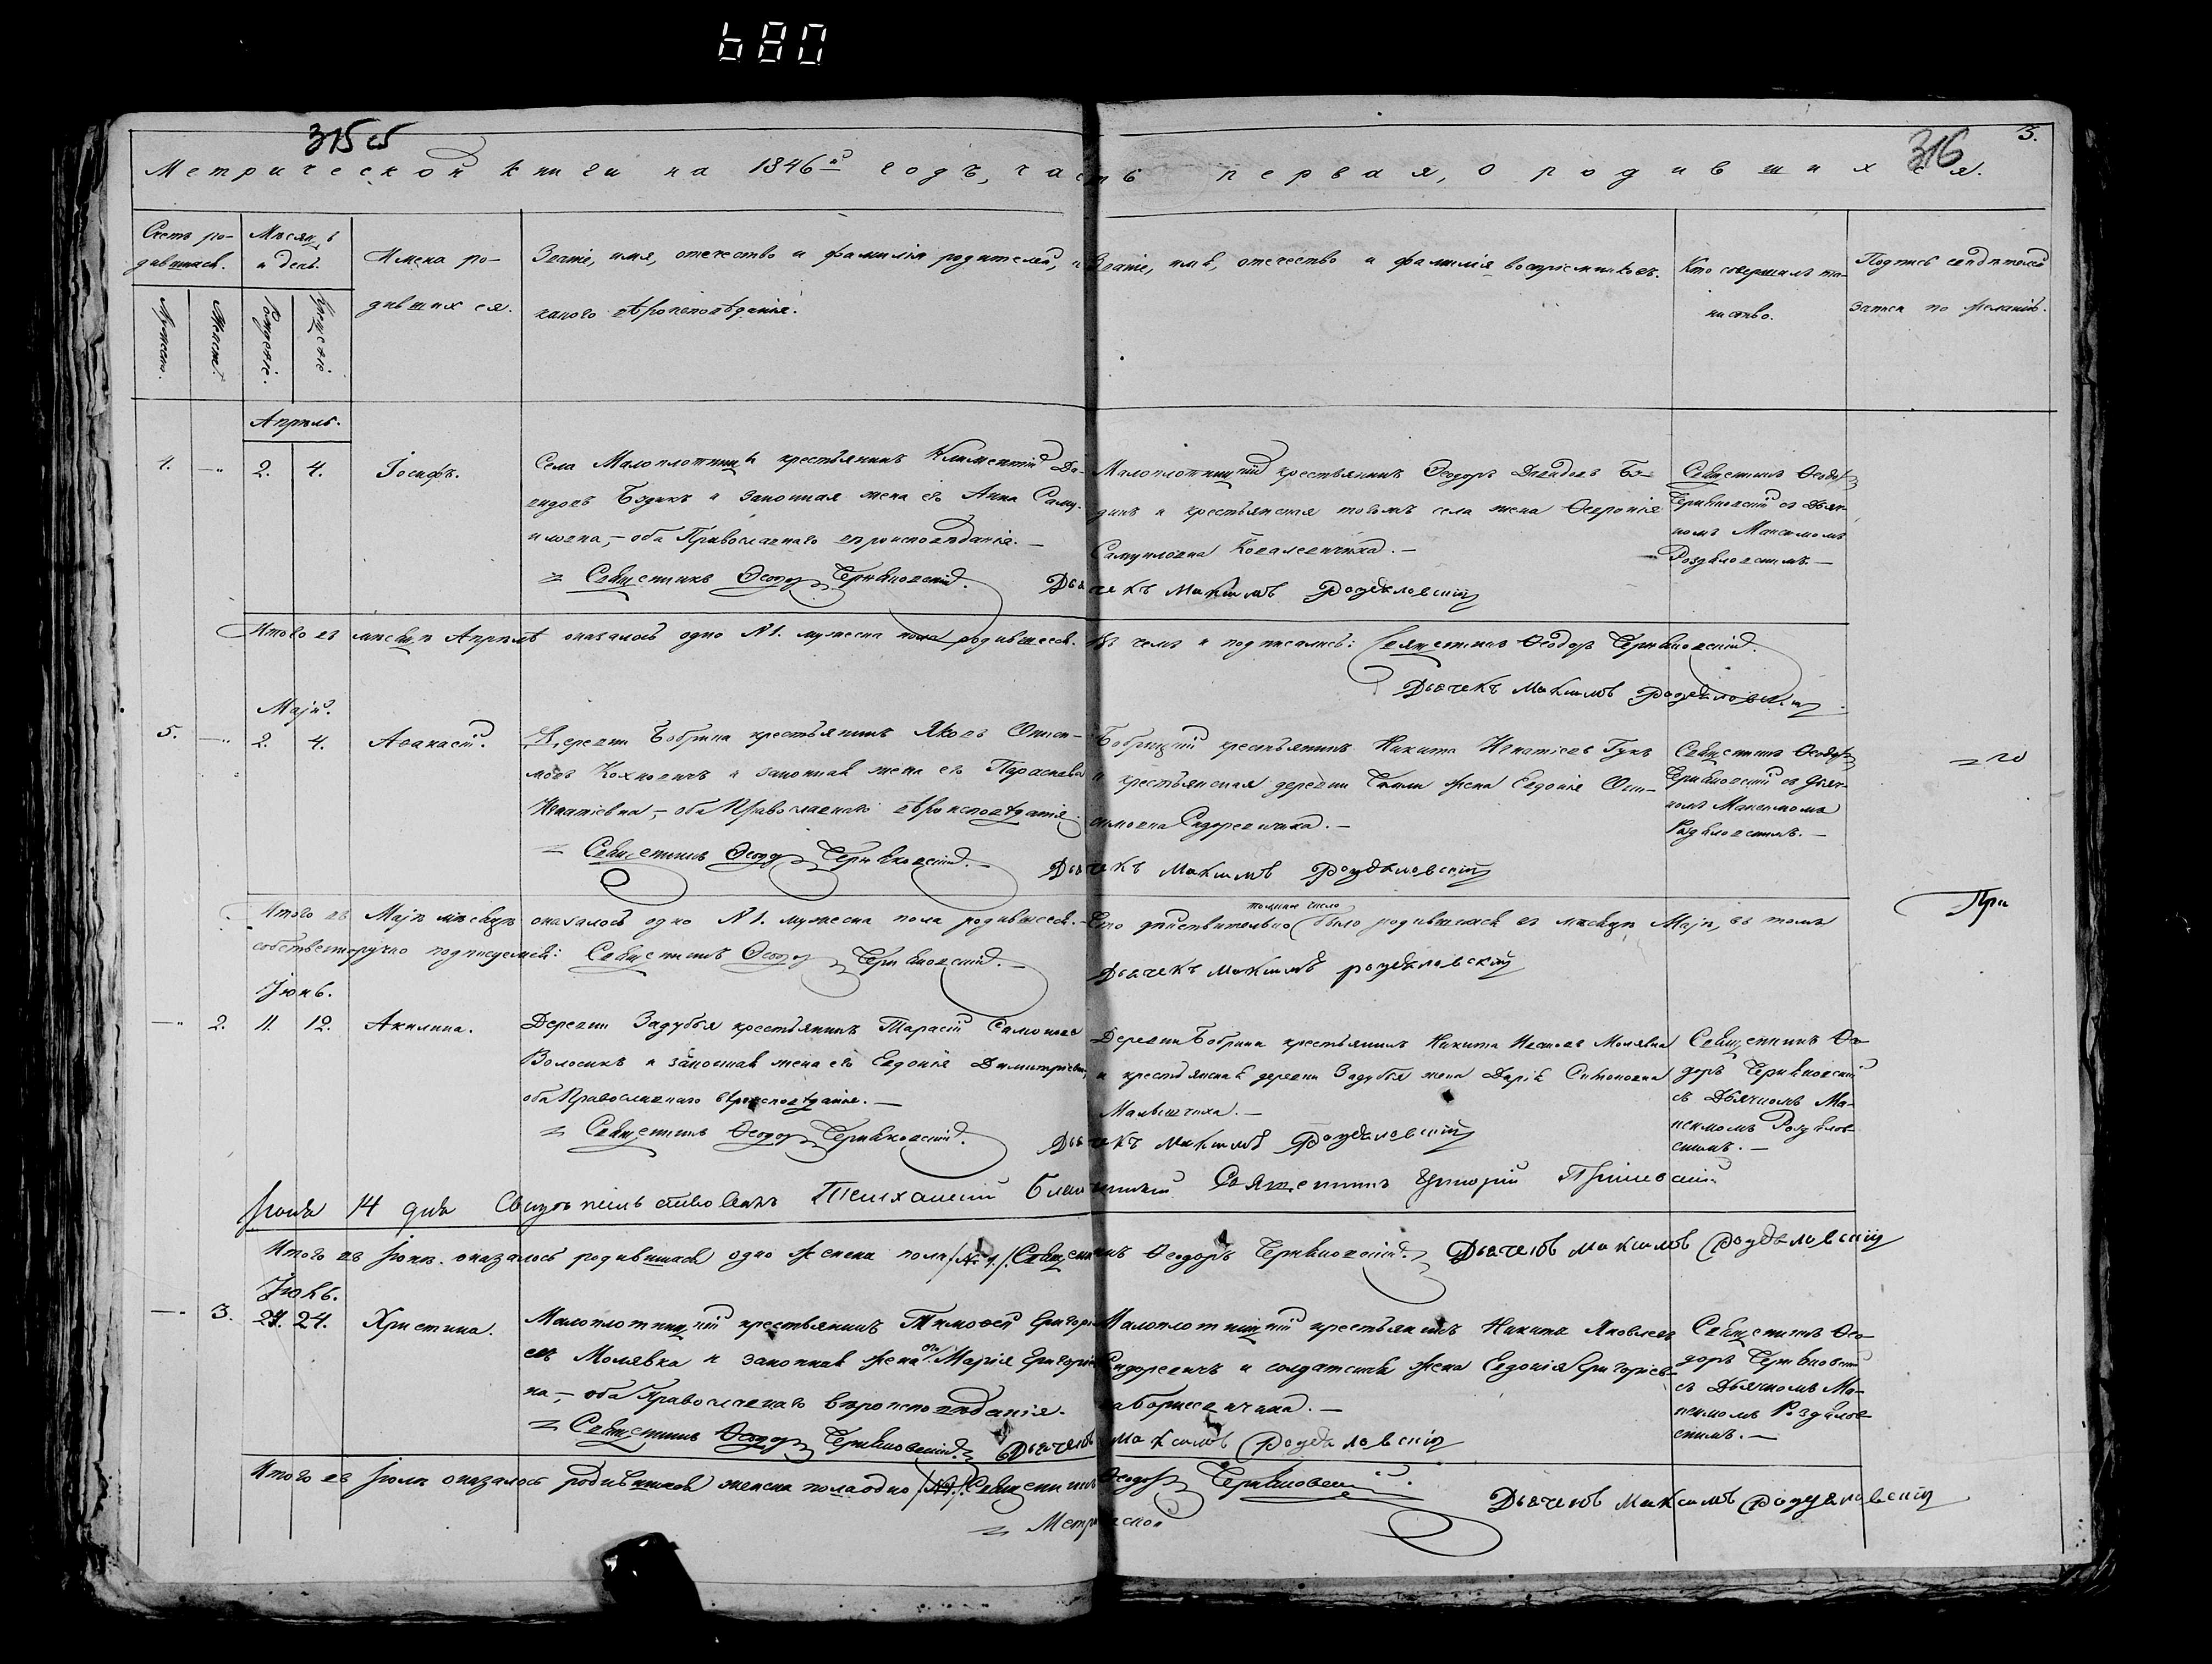 680
315 об
316
3.
Метрической книги на 1846й годъ, часть первая, о родившихся.
Счетъ ро-
дившихся.
Мѣсяцъ
и день.
Имена ро-
дившихся.
Званіе, имя, отечество и фамилія родителей, и
какого вѣроисповѣданія.
Званіе, имя, отечество и фамилія воспріемниковъ.
Кто совершалъ та-
инство.
Подпись свидѣтелей
записи по желанію.
Мужеск.
Женск.
Рожденіе.
Крещеніе
Апрѣль.
4. —„ 2. 4. Іосифъ.
Села Малоплотницъ крестьянинъ Климентій Да-
видовъ Бздикъ и законная жена его Анна Саму-
иловна, — оба Православнаго вѣроисповѣданія. —
Священникъ Ѳеодоръ Черняковскій.
Малоплотницкій крестьянинъ Ѳеодоръ Давидовъ Бз-
дикъ и крестьянская тогожъ села жена Ѳевронія
Самуиловна Ковалевичиха. —
Дьячекъ Максимъ Роздяловскій
Священникъ Ѳеодоръ
Черняковскій съ Дьяч-
комъ Максимомъ
Роздяловскимъ. —
Итого въ мѣсяцѣ Апрѣлѣ оказалось одно №1. мужеска пола родившееся. Въ чемъ и подписались: Священникъ Ѳеодоръ Черняковскій.
Дьячекъ Максимъ Роздяловскій
Маій.
5. —„ 2. 4. Аѳанасій.
Деревни Бобрика крестьянинъ Яковъ Описи-
мовъ Кохновичъ и законная жена его Параскева
Игнатіевна, — оба Православнаго вѣроисповѣданія.
Священникъ Ѳеодоръ Черняковскій. —
Бобрицкій крестьянинъ Никита Игнатіевъ Гукъ
и крестьянская деревни жена Евдокія Они-
симовна Сидоревичиха. —
Дьячекъ Максимъ Роздяловскій
Священникъ Ѳеодоръ
Черняковскій съ Дьяч-
комъ Максимомъ
Роздяловскимъ. —
Итого въ Маіѣ мѣсяцѣ оказалось одно №1. мужеска пола родившееся. — Что дѣйствительно толикое число было родившихся въ мѣсяцѣ Маіѣ, въ томъ
собственноручно подписуемся: Священникъ Ѳеодоръ Черняковскій. —
Дьячекъ Максимъ Роздяловскій
При
Іюнь.
—„ 2. 11. 12. Акилина.
Деревни Задубья крестьянинъ Тарасій Самоиловъ
Волосикъ и законная жена его Евдокія Димитріевна,
оба Православнаго вѣроисповѣданія. —
Священникъ Ѳеодоръ Черняковскій.
Деревни Бобрика крестьянинъ Никита Ивановъ Молявка
и крестьянская деревни Задубья жена Дарія Симоновна
Малышчиха. —
Дьячекъ Максимъ Роздяловскій
Священникъ Ѳео-
доръ Черняковскій
съ Дьячкомъ Ма-
ксимомъ Роздялов-
скимъ. —
Іюня 14 дня Свидѣтельствовалъ Телеханскій Благочинный Священникъ Григорій
Итого въ Іюнѣ оказалось родившихся одно женска пола /№ 1./ Священникъ Ѳеодоръ Черняковскій. Дьячекъ Максимъ Роздяловскій
Іюль.
—„ 3. 24. Христина.
Малоплотницкій крестьянинъ Тимоѳей Григорі-
евъ Молявка и законная жена его Марія Григоріев-
на, — оба Православнаго вѣроисповѣданія.
Священникъ Ѳеодоръ Черняковскій. Дьячекъ Максимъ Роздяловскій
Малоплотницкій крестьянинъ Никита Яковлевъ
Сидоревичъ и солдатская жена Евдокія Григоріев-
на Борисевичиха. —
Священникъ Ѳео-
доръ Черняковскій
съ Дьячкомъ Ма-
ксимомъ Роздялов-
скимъ. —
Итого въ Іюлѣ оказалось родившихся женска пола одно /№1/. Священникъ Ѳеодоръ Черняковскій. Дьячекъ Максимъ Роздяловскій
Метрической